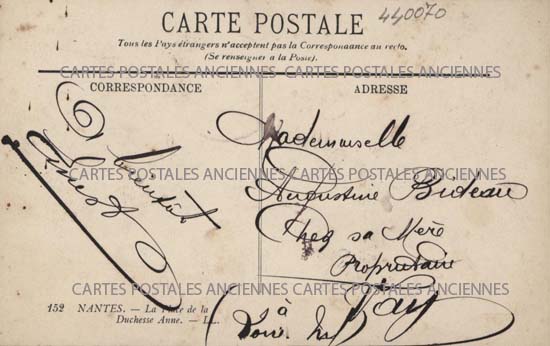 CARTE POSTALE
440070
Tous les Pays étrangers n'acceptent pas la Correspondance au recto.
(Se renseigner à la Poste).
CARTES POSTALES ANCIENNES CARTES POSTALES ANCIENNES
CORRESPONDANCE
ADRESSE
A bientôt
Ernest
Mademoiselle
CARTES POSTALES ANCIENNES CARTES POSTALES ANCIENNES
Augustine Buteau
Chez sa Mère
Propriétaire
CARTES POSTALES ANCIENNES CARTES POSTALES ANCIENNES
à
152 NANTES. — La Place de la
Duchesse Anne. — LL.